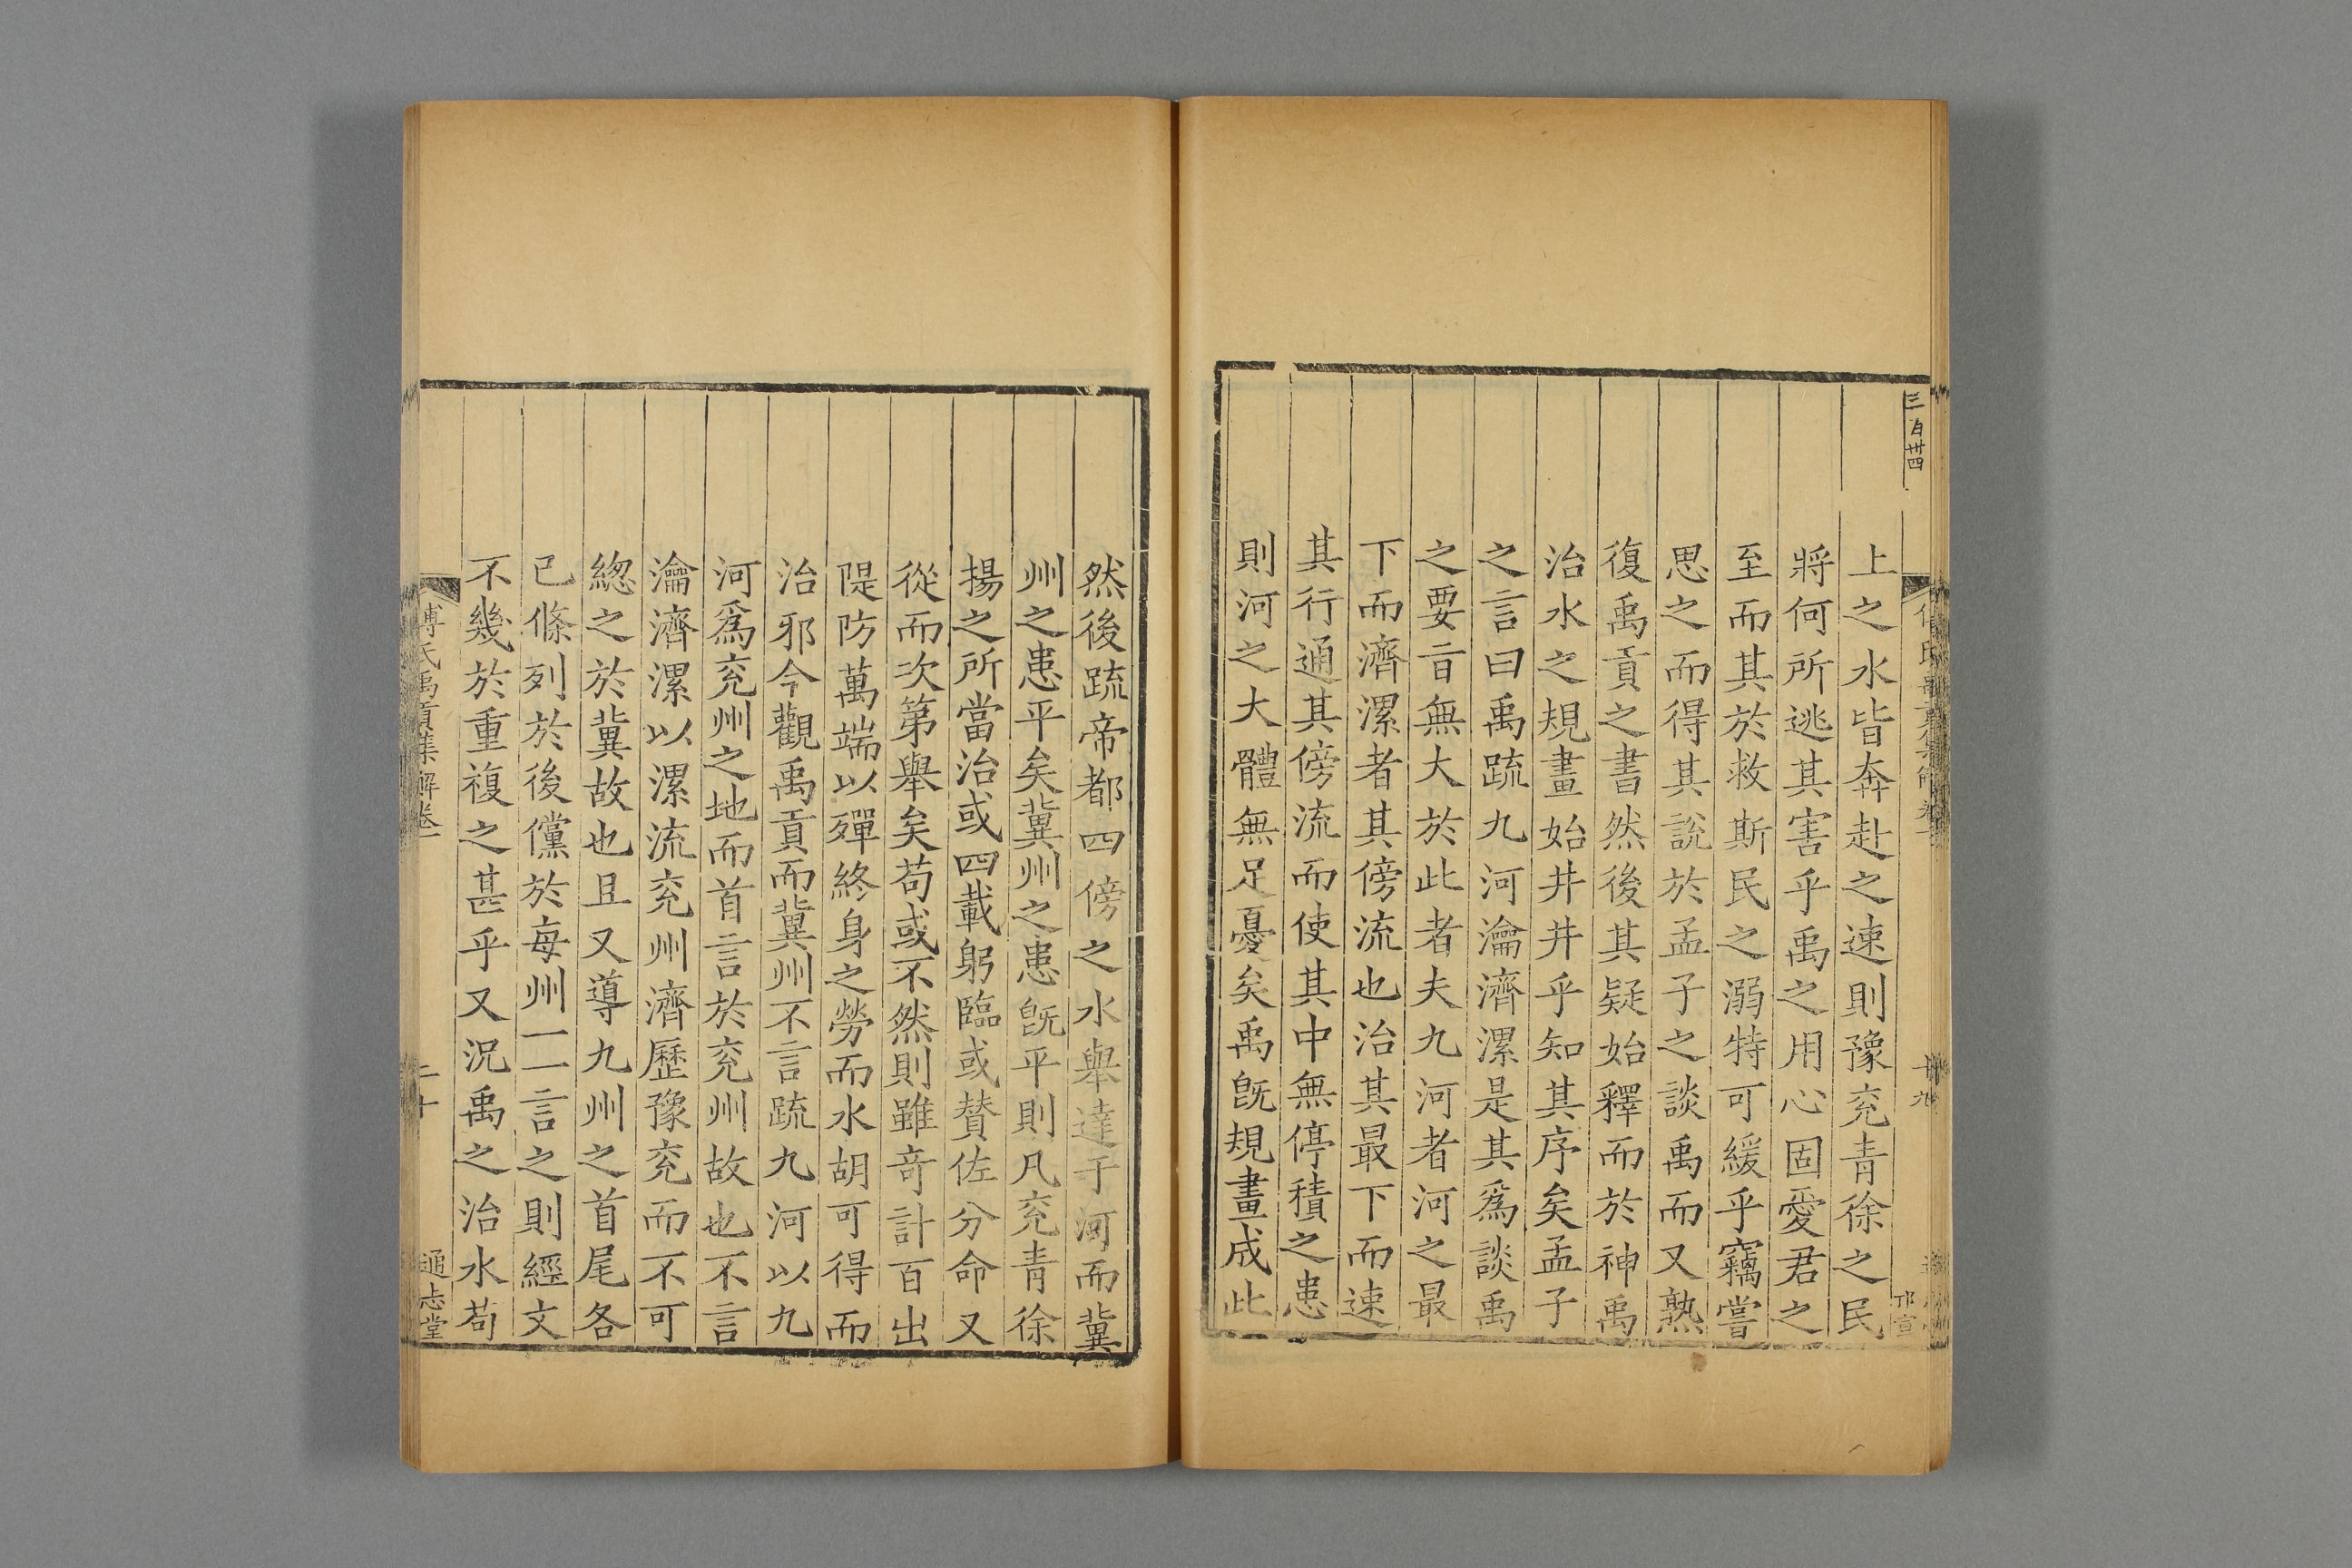 三百卅四
上之水皆奔赴之速則豫兖青徐之民
將何所逃其害乎禹之用心固愛君之
至而其於救斯民之溺特可緩乎竊嘗
思之而得其說於孟子之談禹而又熟
復禹貢之書然後其疑始釋而於神禹
治水之規畫始井井乎知其序矣孟子
之言曰禹疏九河瀹濟漯是其爲談禹
之要旨無大於此者夫九河者河之最
下而濟漯者其傍流也治其最下而速
其行通其傍流而使其中無停積之患
則河之大體無足憂矣禹旣規畫成此
然後疏帝都四傍之水舉達于河而冀
州之患平矣冀州之患旣平則凡兖青徐
揚之所當治或四載躬臨或賛佐分命又
從而次第舉矣苟或不然則雖竒計百出
隄防萬端以殫終身之勞而水胡可得而
治邪今觀禹貢而冀州不言疏九河以九
河爲兖州之地而首言於兖州故也不言
瀹濟漯以漯流兖州濟歷豫兖而不可
緫之於冀故也且又導九州之首尾各
已條列於後儻於每州一一言之則經文
不幾於重複之甚乎又況禹之治水苟
傅氏禹貢集解卷一
二十
通志堂